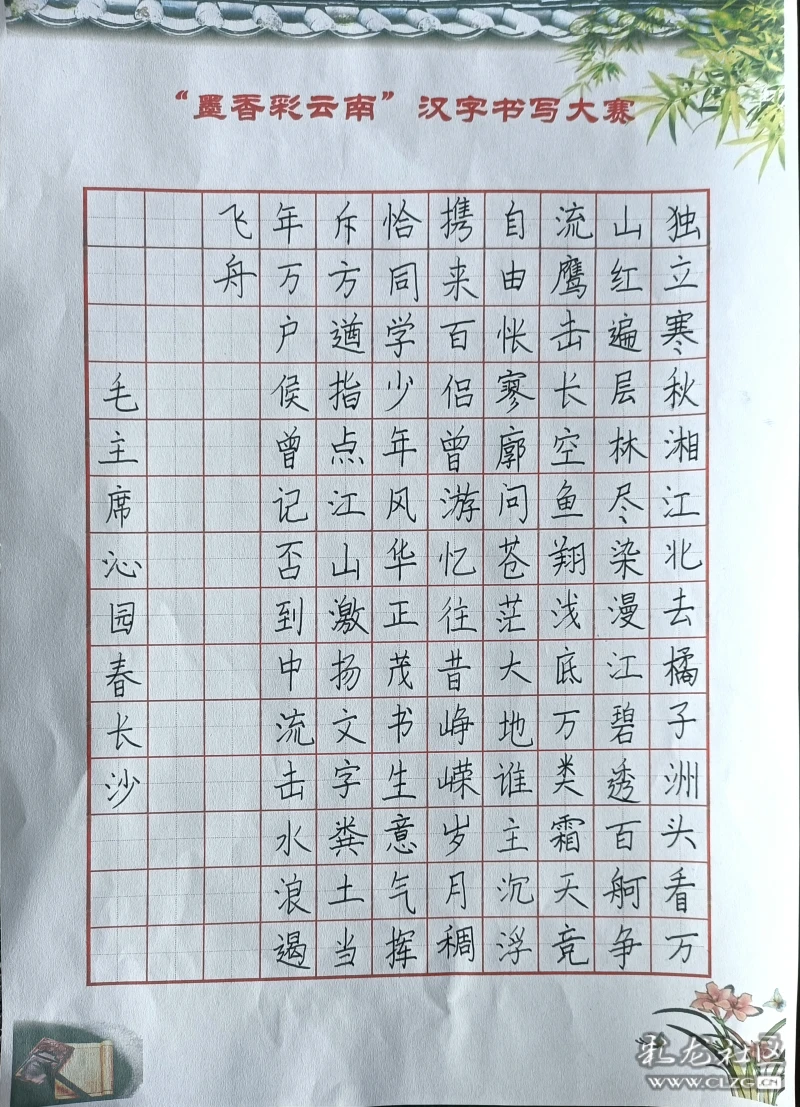 “墨香彩云南”汉字书写大赛
独立寒秋湘江北去橘子洲头看万
山红遍层林尽染漫江碧透百舸争
流鹰击长空鱼翔浅底万类霜天竞
自由怅寥廓问苍茫大地谁主沉浮
携来百侣曾游忆往昔峥嵘岁月稠
恰同学少年风华正茂书生意气挥
斥方遒指点江山激扬文字粪土当
年万户侯曾记否到中流击水浪遏
飞舟
毛主席沁园春长沙
彩龙社区
WWW.CLZG.CN